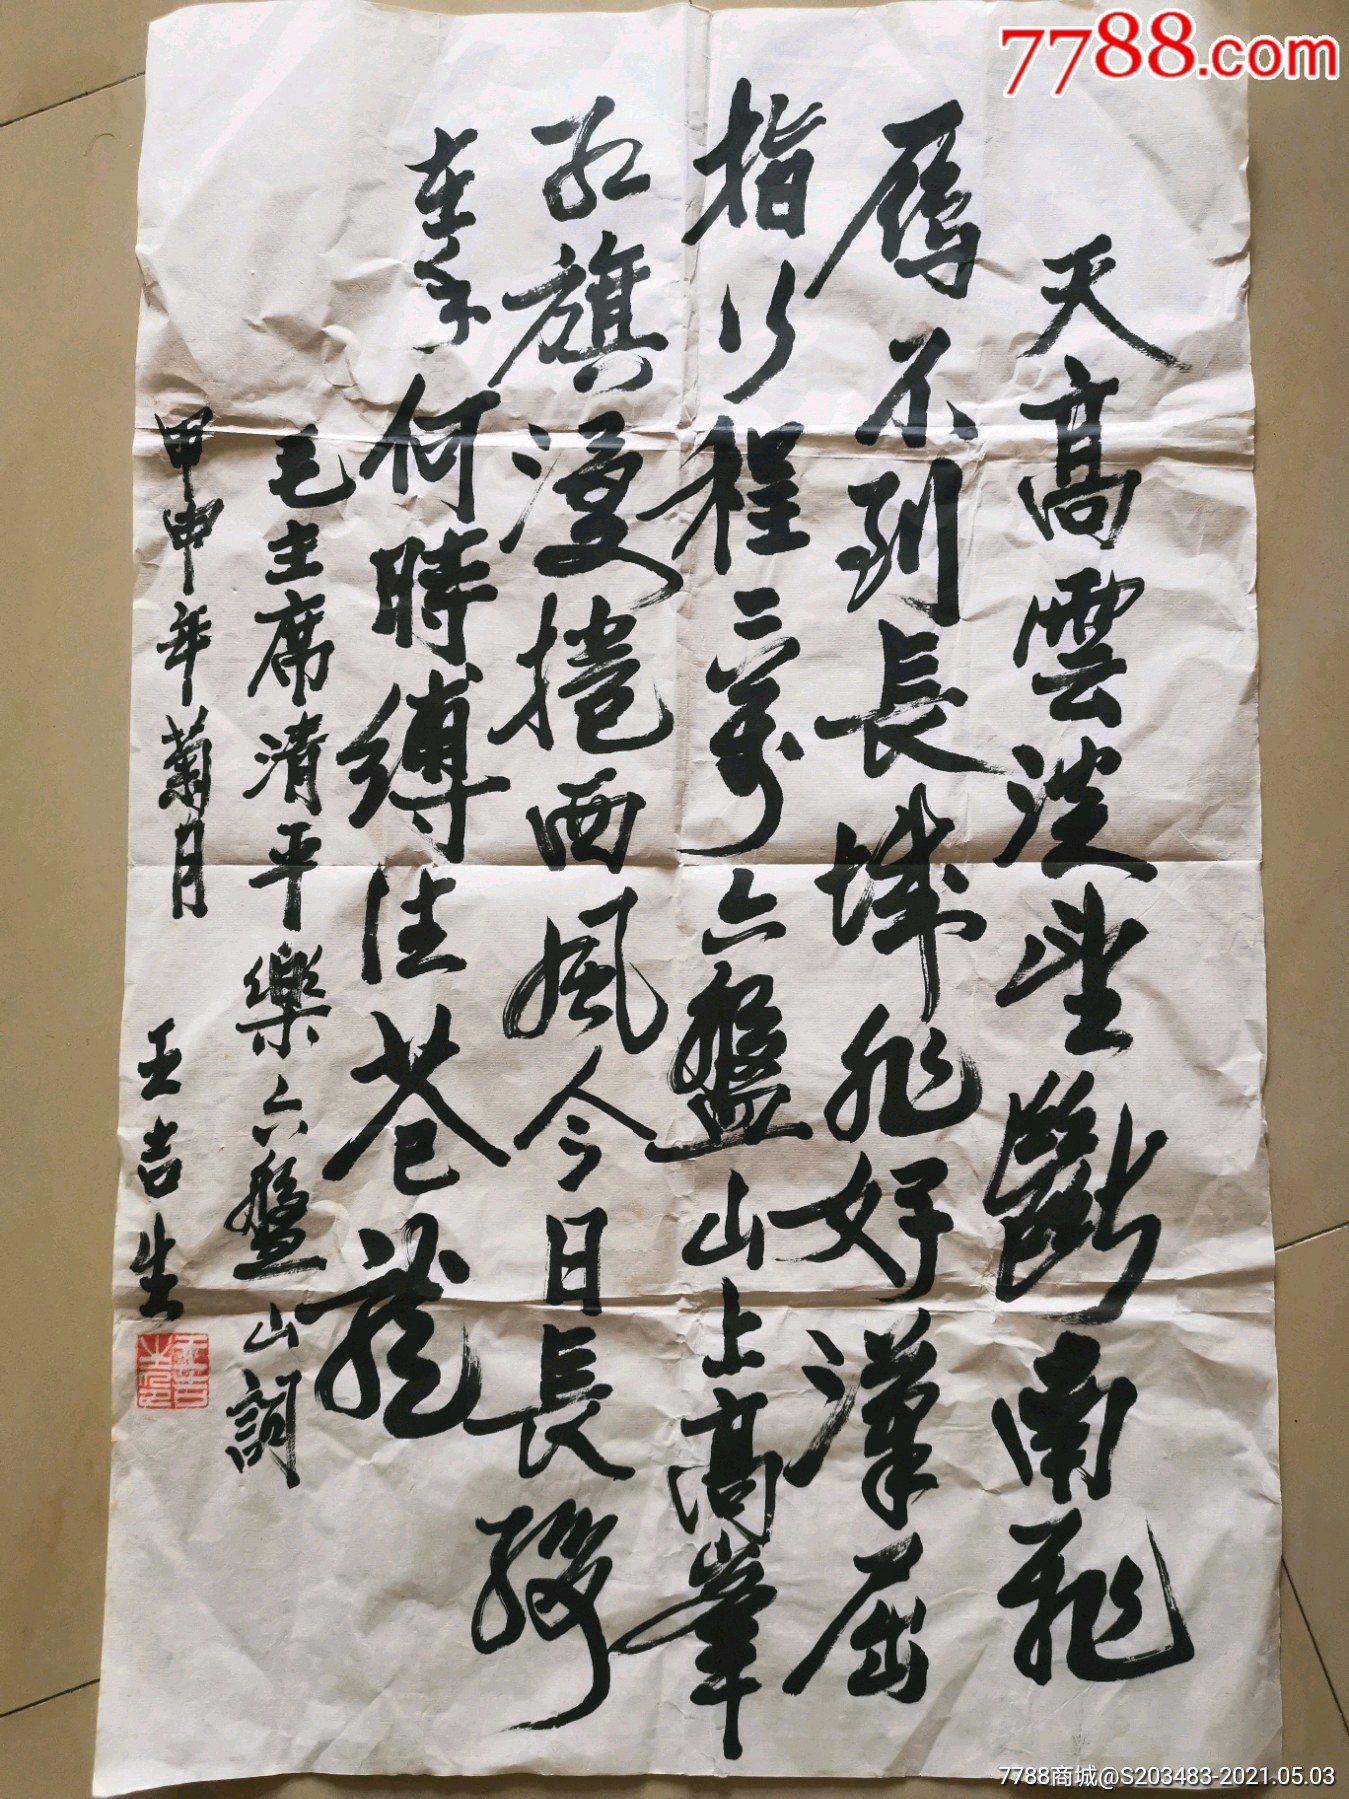 7788.com
天高雲淡望斷南飛
雁不到長城非好漢屈
指行程二萬六盤山上高峯
红旗漫捲西風今日長纓
在手何時縛住苍龍
毛主席清平樂六盤山詞
甲申年菊月 王吉生
王吉生印
7788商城@S203483-2021.05.03